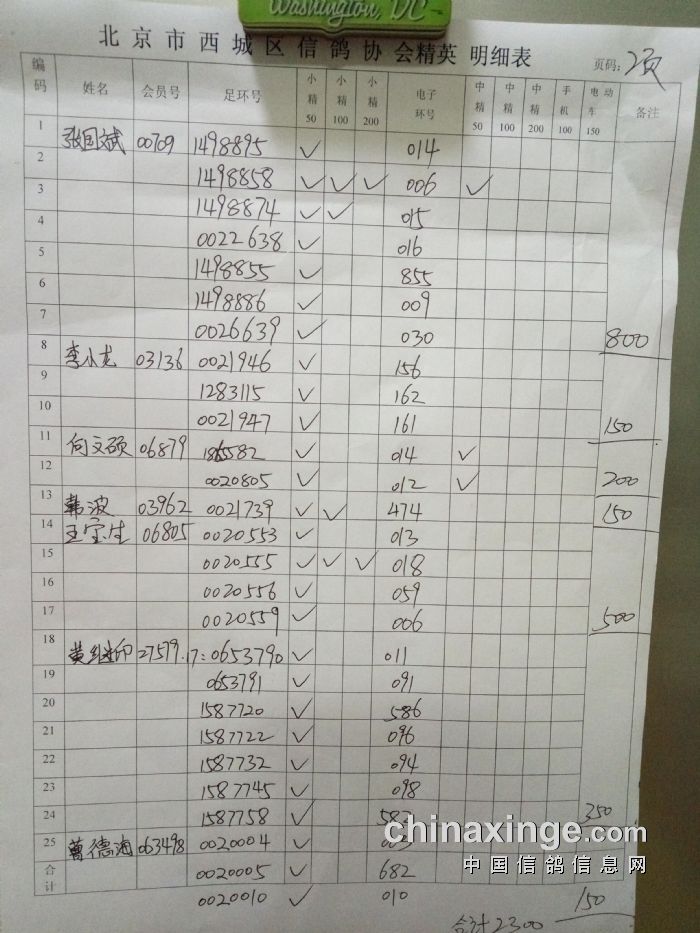 Washington, DC
北京市西城区信鸽协会精英 明细表
页码: 2页
编码 姓名 会员号 足环号 小精50 小精100 小精200 电子环号 中精50 中精100 中精200 手机100 电动车150 备注
1 张国斌 00709 1498895 ✓ 014
2 1498858 ✓ ✓ ✓ 006 ✓
3 1498874 ✓ ✓ 015
4 0022638 ✓ 016
5 1498855 ✓ 855
6 1498886 ✓ 009
7 0026639 ✓ 030 800
8 李小龙 03136 0021946 ✓ 156
9 1283115 ✓ 162
10 0021947 ✓ 161 150
11 何文硕 06879 ✓ 014 ✓
12 0020805 ✓ 012 ✓ 200
13 韩波 03962 0021739 ✓ ✓ 474 150
14 王宝生 06805 0020553 ✓ 013
15 0020555 ✓ ✓ ✓ 018
16 0020556 ✓ 059
17 0020559 ✓ 006 500
18 黄继印 27579 17:0653790 ✓ 011
19 0653791 ✓ 091
20 1587720 ✓ 586
21 1587722 ✓ 096
22 1587732 ✓ 094
23 1587745 ✓ 098
24 1587758 ✓ 350
25 曹德海 063498 0020004 ✓
合计 0020005 ✓ 682
0020010 ✓ 010 150
合计2300
chinaxinge.com
中国信鸽信息网